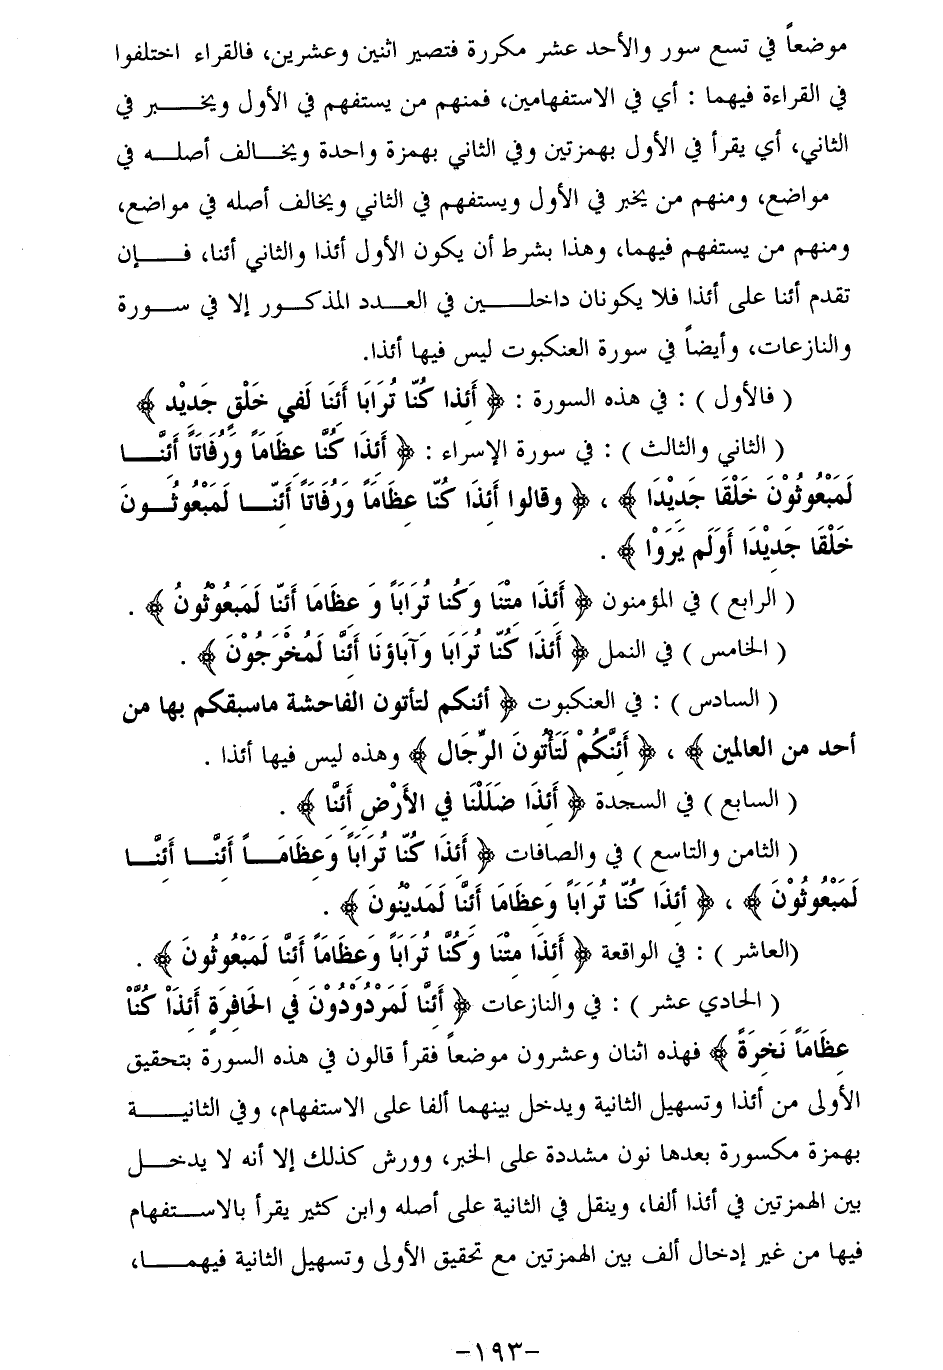 موضعاً في تسع سور والأحد عشر مكررة فتصير اثنين وعشرين، فالقراء اختلفوا
في القراءة فيهما : أي في الاستفهامين، فمنهم من يستفهم في الأول ويخـــــبر في
الثاني، أي يقرأ في الأول بهمزتين وفي الثاني بهمزة واحدة ويخـــالف أصلـــه في
مواضع، ومنهم من يخبر في الأول ويستفهم في الثاني ويخالف أصله في مواضع،
ومنهم من يستفهم فيهما، وهذا بشرط أن يكون الأول أئذا والثاني أئنا، فـــإن
تقدم أئنا على أئذا فلا يكونان داخلـــــين في العـــدد المذكـــور إلا في ســـورة
والنازعات، وأيضاً في سورة العنكبوت ليس فيها أئذا.
( فالأول ) : في هذه السورة : ﴿ أَئذا كُنّا تُرَابَا أَئنَا لَفي خَلْقٍ جَدِيْد ﴾
( الثاني والثالث ) : في سورة الإسراء : ﴿ أَئذَا كُنَّا عِظَامَاً وَرُفَاتَاً أَئنَّـــا
لَمَبْعُوثُوْنَ خَلْقَا جَدِيْدَا ﴾ ، ﴿ وقالوا أَئذَا كُنّا عِظَامَاً وَرُفَاتَاً أَئنّـــا لَمَبْعُوثُـــونَ
خَلْقَا جَدِيْدَا أَوَلَم يَرَوْا ﴾ .
( الرابع ) في المؤمنون ﴿ أَئذَا مِتْنَا وَكُنا تُرَابَاً وَ عِظَامَا أَئنّا لَمَبعُوْثُونُ ﴾ .
( الخامس ) في النمل ﴿ أَئذَا كُنّا تُرَابَا وَآبَاؤنَا أَئنَّا لَمُخْرَجُوْنَ ﴾ .
( السادس ) : في العنكبوت ﴿ أئنكم لتأتون الفاحشة ماسبقكم بها من
أحد من العالمين ﴾ ، ﴿ أَئنَّكُمْ لَتَأْتُونَ الرِّجَال ﴾ وهذه ليس فيها أئذا .
( السابع ) في السجدة ﴿ أَئذَا ضَلَلْنَا في الأَرْضِ أَئنَّا ﴾ .
( الثامن والتاسع ) في والصافات ﴿ أَئذَا كُنّا تُرَابَاً وَعِظَامَـــاً أَئنَّـــا أَئنَّـــا
لَمَبْعُوثُوْنَ ﴾ ، ﴿ أئذَا كُنّا تُرَابَاً وَعظَامَا أَئنَّا لَمَدِيْنُونَ ﴾ .
(العاشر ) : في الواقعة ﴿ أَئذَا مِتْنَا وَكُنَّا تُرَابَاً وَعِظَامَاً أَئنَّا لَمَبْعُوثُونَ ﴾ .
( الحادي عشر ) : في والنازعات ﴿ أَئنَّا لَمَرْدُوْدُوْنَ في الحَافِرَةِ أَئذَاْ كُنَّاْ
عِظَامَاً نَخِرَةً ﴾ فهذه اثنان وعشرون موضعاً فقرأ قالون في هذه السورة بتحقيق
الأولى من أئذا وتسهيل الثانية ويدخل بينهما ألفا على الاستفهام، وفي الثانيـــــة
بهمزة مكسورة بعدها نون مشددة على الخبر، وورش كذلك إلا أنه لا يدخـــل
بين الهمزتين في أئذا ألفا، وينقل في الثانية على أصله وابن كثير يقرأ بالاســـتفهام
فيها من غير إدخال ألف بين الهمزتين مع تحقيق الأولى وتسهيل الثانية فيهمـــا،
-١٩٣-